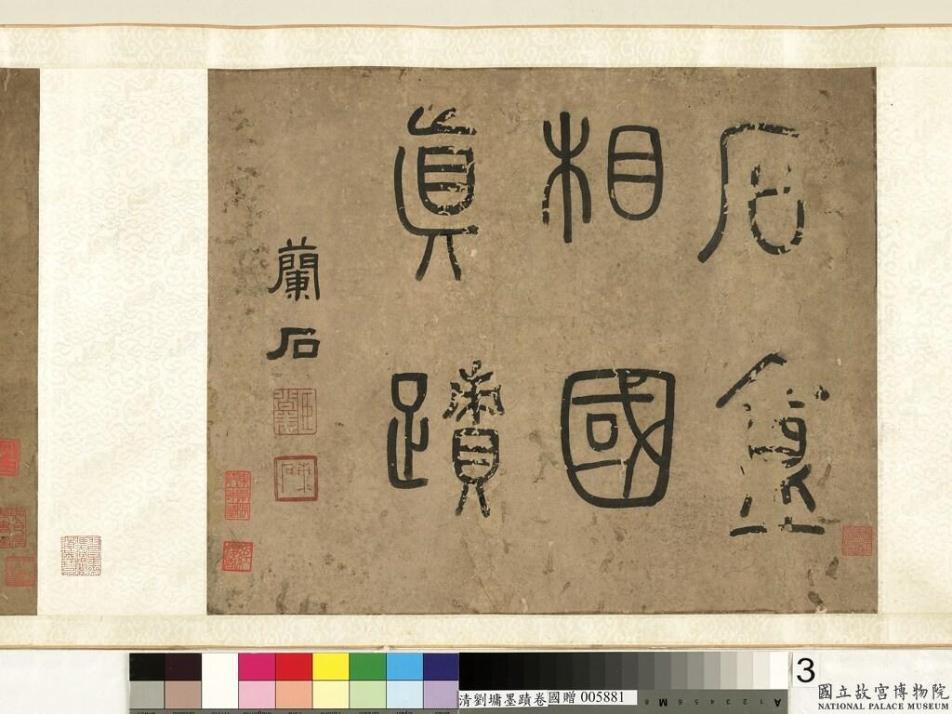 石盦
相國
眞蹟
蘭石
清劉墉墨蹟卷國贈 005881
3
國立故宮博物院
NATIONAL PALACE MUSEUM